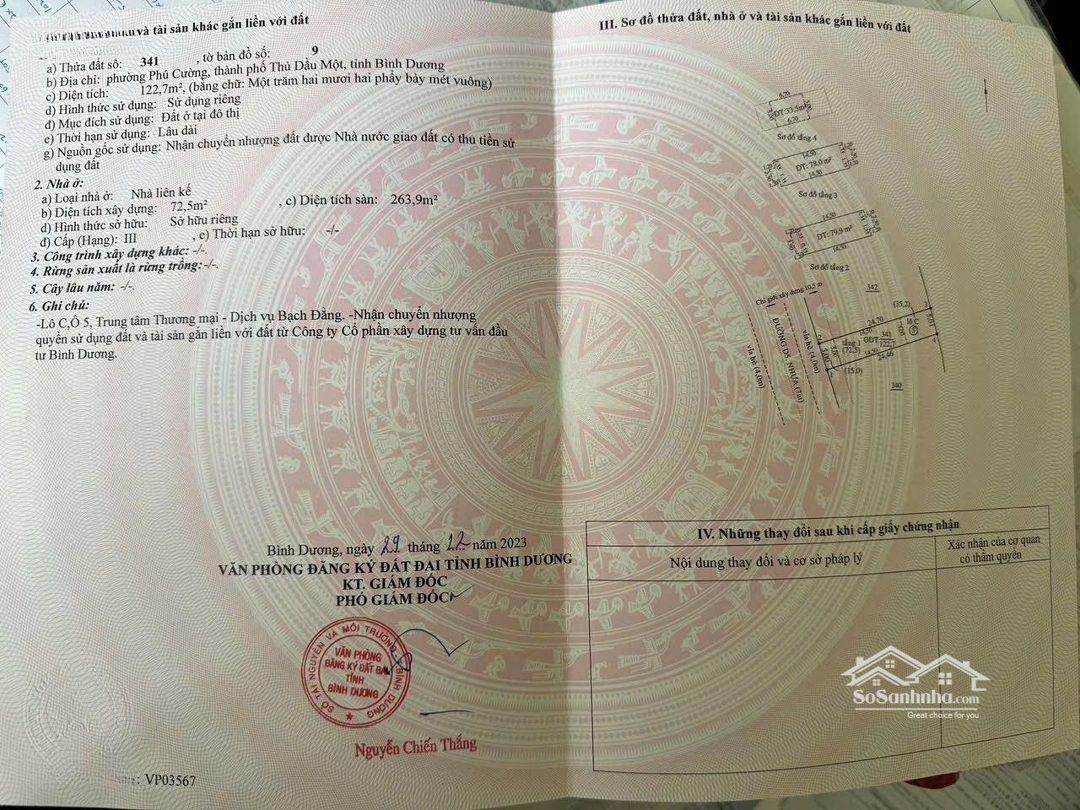 và tài sản khác gắn liền với đất
a) Thửa đất số: 341 , tờ bản đồ số: 9
b) Địa chỉ: phường Phú Cường, thành phố Thủ Dầu Một, tỉnh Bình Dương
c) Diện tích: 122,7m², (bằng chữ: Một trăm hai mươi hai phẩy bảy mét vuông)
d) Hình thức sử dụng: Sử dụng riêng
đ) Mục đích sử dụng: Đất ở tại đô thị
e) Thời hạn sử dụng: Lâu dài
g) Nguồn gốc sử dụng: Nhận chuyển nhượng đất được Nhà nước giao đất có thu tiền sử
dụng đất
2. Nhà ở:
a) Loại nhà ở: Nhà liên kế
b) Diện tích xây dựng: 72,5m² , c) Diện tích sàn: 263,9m²
d) Hình thức sở hữu: Sở hữu riêng
đ) Cấp (Hạng): III , e) Thời hạn sở hữu: -/-
3. Công trình xây dựng khác: -/-.
4. Rừng sản xuất là rừng trồng:-/-.
5. Cây lâu năm: -/-.
6. Ghi chú:
-Lô C,Ô 5, Trung tâm Thương mại - Dịch vụ Bạch Đằng. -Nhận chuyển nhượng
quyền sử dụng đất và tài sản gắn liền với đất từ Công ty Cổ phần xây dựng tư vấn đầu
tư Bình Dương.
Bình Dương, ngày 29 tháng 12 năm 2023
VĂN PHÒNG ĐĂNG KÝ ĐẤT ĐAI TỈNH BÌNH DƯƠNG
KT. GIÁM ĐỐC
PHÓ GIÁM ĐỐC
SỞ TÀI NGUYÊN VÀ MÔI TRƯỜNG BÌNH DƯƠNG
VĂN PHÒNG
ĐĂNG KÝ ĐẤT ĐAI
TỈNH
BÌNH DƯƠNG
Nguyễn Chiến Thắng
: VP03567
III. Sơ đồ thửa đất, nhà ở và tài sản khác gắn liền với đất
6,70
ĐT:33,5m²
6,70
Sơ đồ tầng 4
14,50
ĐT: 78,0 m²
14,50
Sơ đồ tầng 3
14,50
ĐT: 79,9 m²
14,50
Sơ đồ tầng 2
342
Chỉ giới xây dựng 10,5 m
(35,2)
3
24,70
5,01
14,50
tầng 1
(72,5)
ODT
341
122,7
5,00
14,50
24,46
4
1
(15,0)
vỉa hè (4,0m)
ĐƯỜNG D5, NHỰA (7m)
vỉa hè (4,0m)
340
IV. Những thay đổi sau khi cấp giấy chứng nhận
Nội dung thay đổi và cơ sở pháp lý
Xác nhận của cơ quan
có thẩm quyền
SoSanhnha.com
Great choice for you